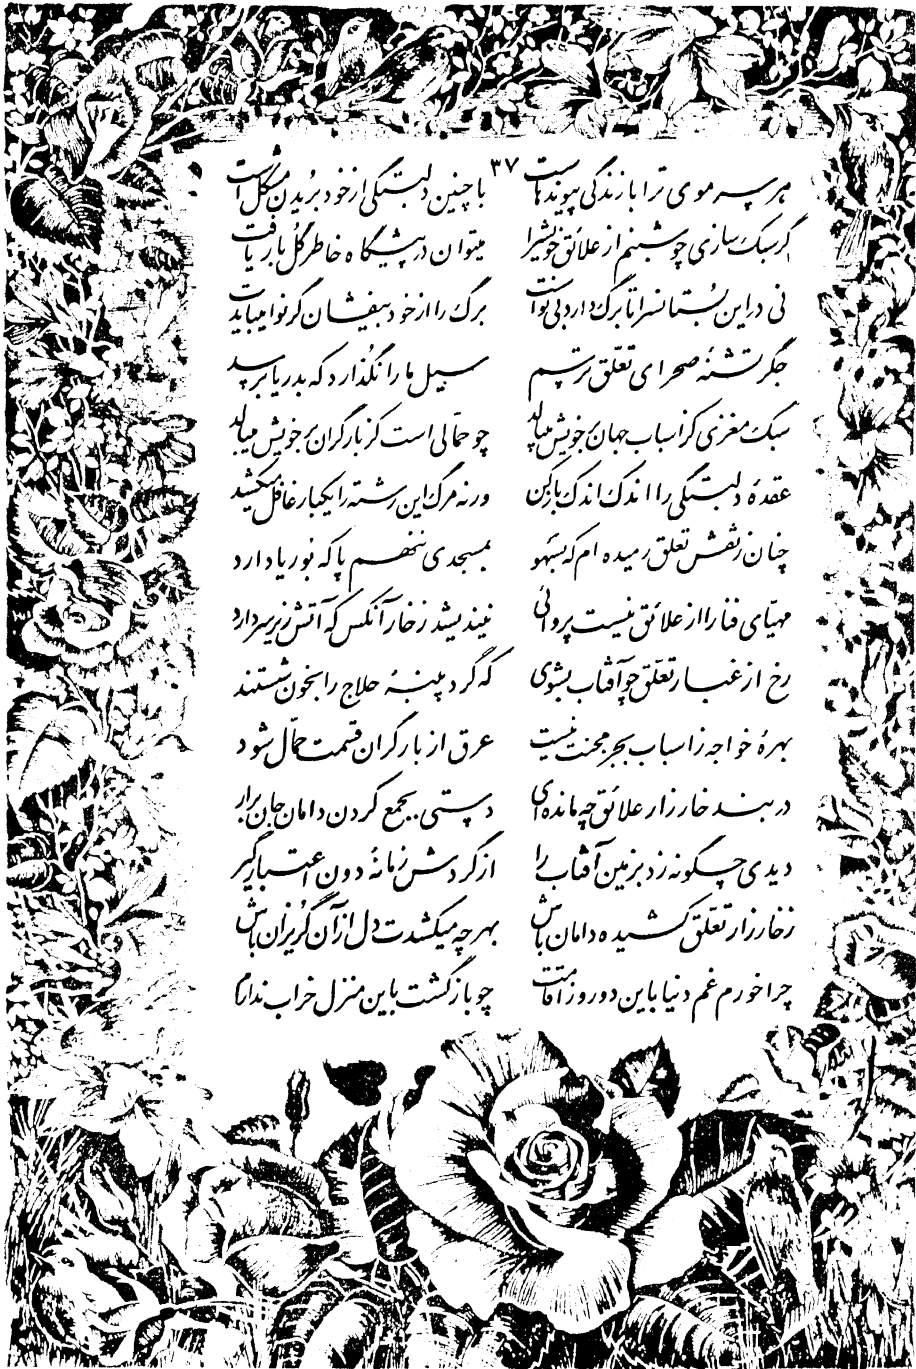 ۳۷
هر سر موی ترا با زندگی پیوندهاست با چنین دلبستگی از خود بریدن مشکل است
گر سبک سازی چو شبنم از علائق خویش را میتوان در پیشگاه خاطر گل بار یافت
نی در این بستانسرا تا برگ دارد بی نواست برگ را از خود بیفشان گر نوا میبایدت
جگر تشنهٔ صحرای تعلّق ترسم سیل ما را نگذارد که بدریا برسد
سبک مغزی کز اسباب جهان بر خویش میبالد چو حمّالی است کز بار گران بر خویش میبالد
عقدهٔ دلبستگی را اندک اندک باز کن ورنه مرگ این رشته را یکبار غافل میکشد
چنان ز نقش تعلق رمیده ام که بسهو بمسجدی ننهم پا که بوریا دارد
مهیّای فنا را از علائق نیست پروائی نیندیشد ز خار آنکس که آتش زیر سر دارد
رخ از غبار تعلّق چو آفتاب بشوی که گرد پنبهٔ حلاج را بخون شستند
بهرهٔ خواجه ز اسباب بجز محنت نیست عرق از بار گران قسمت حمّال شود
در بند خارزار علائق چه مانده ای دستی بجمع کردن دامان جان برار
دیدی چگونه زد بزمین آفتاب را از گردش زمانهٔ دون اعتبار گیر
ز خارزار تعلّق کشیده دامان باش بهر چه میکشدت دل از آن گریزان باش
چرا خورم غم دنیا باین دو روز اقامت چو بازگشت باین منزل خراب ندارم